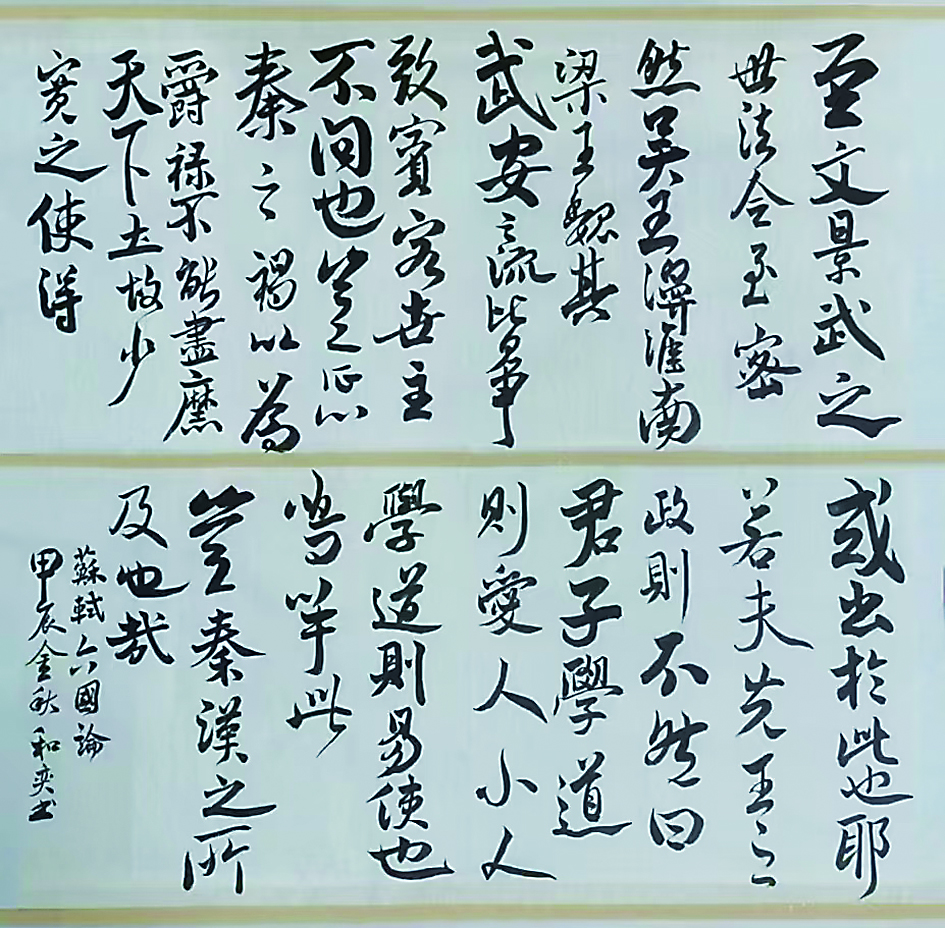 至文景武之
世法令至密
然吴王濞淮南
梁王魏其
武安之流皆爭
致賓客世主
不问也豈懲
秦之禍以為
爵禄不能盡縻
天下士故少
寬之使得
或出於此也耶
若夫先王之
政則不然曰
君子學道
則愛人小人
學道則易使也
嗚呼此
豈秦漢之所
及也哉
蘇軾六國論
甲辰金秋和奕书